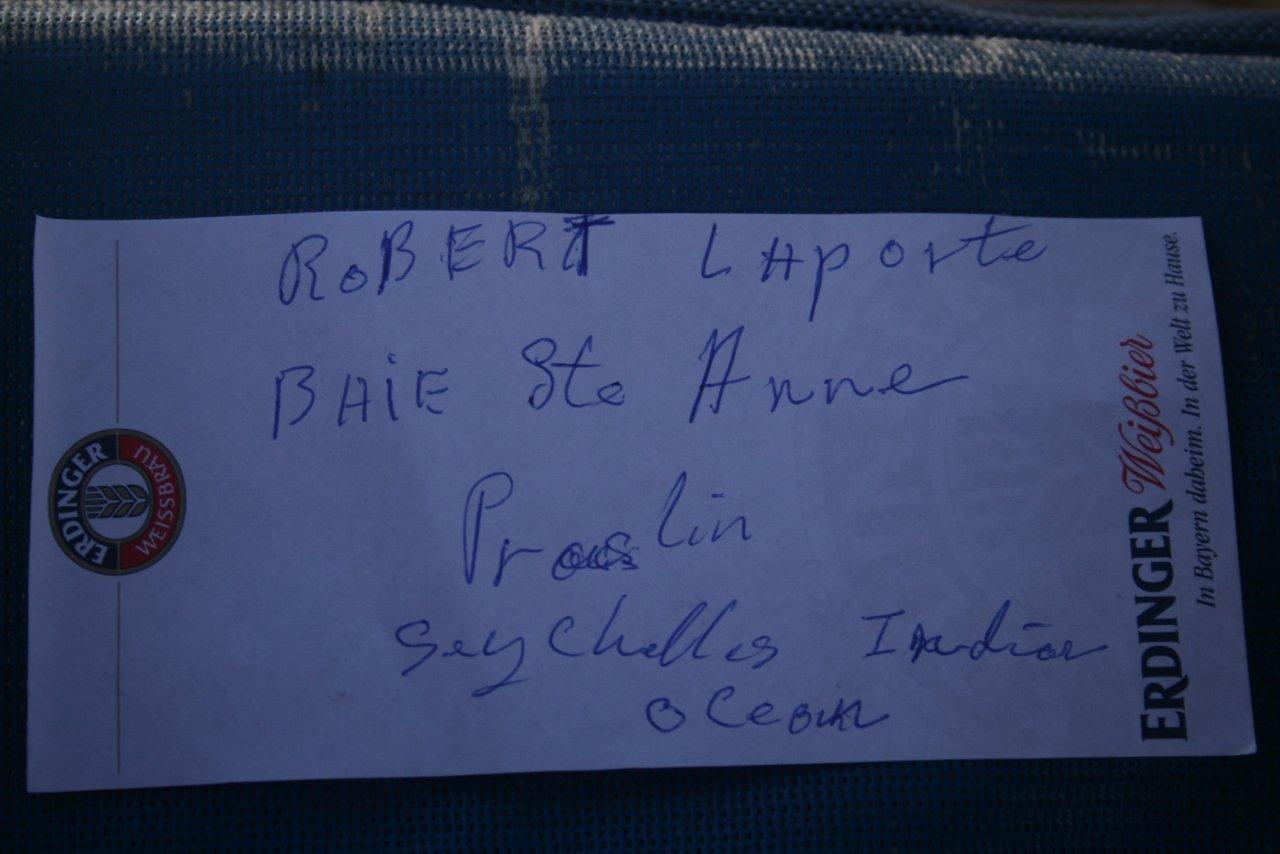 ROBERT LAporte
BAiE Ste Anne
Praslin
Seychelles Indian
Ocean
ERDINGER
WEISSBRÄU
ERDINGER Weißbier
In Bayern daheim. In der Welt zu Hause.